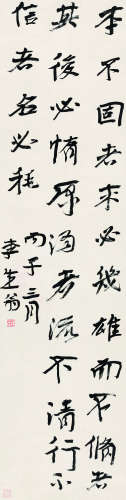 本不固者末必幾雄而不脩者
其後必惰原濁者流不清行不
信者名必耗
丙子三月
李生翁